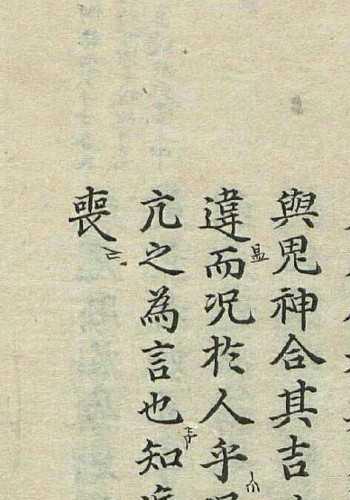 與鬼神合其吉
違而况於人乎
亢之為言也知
喪